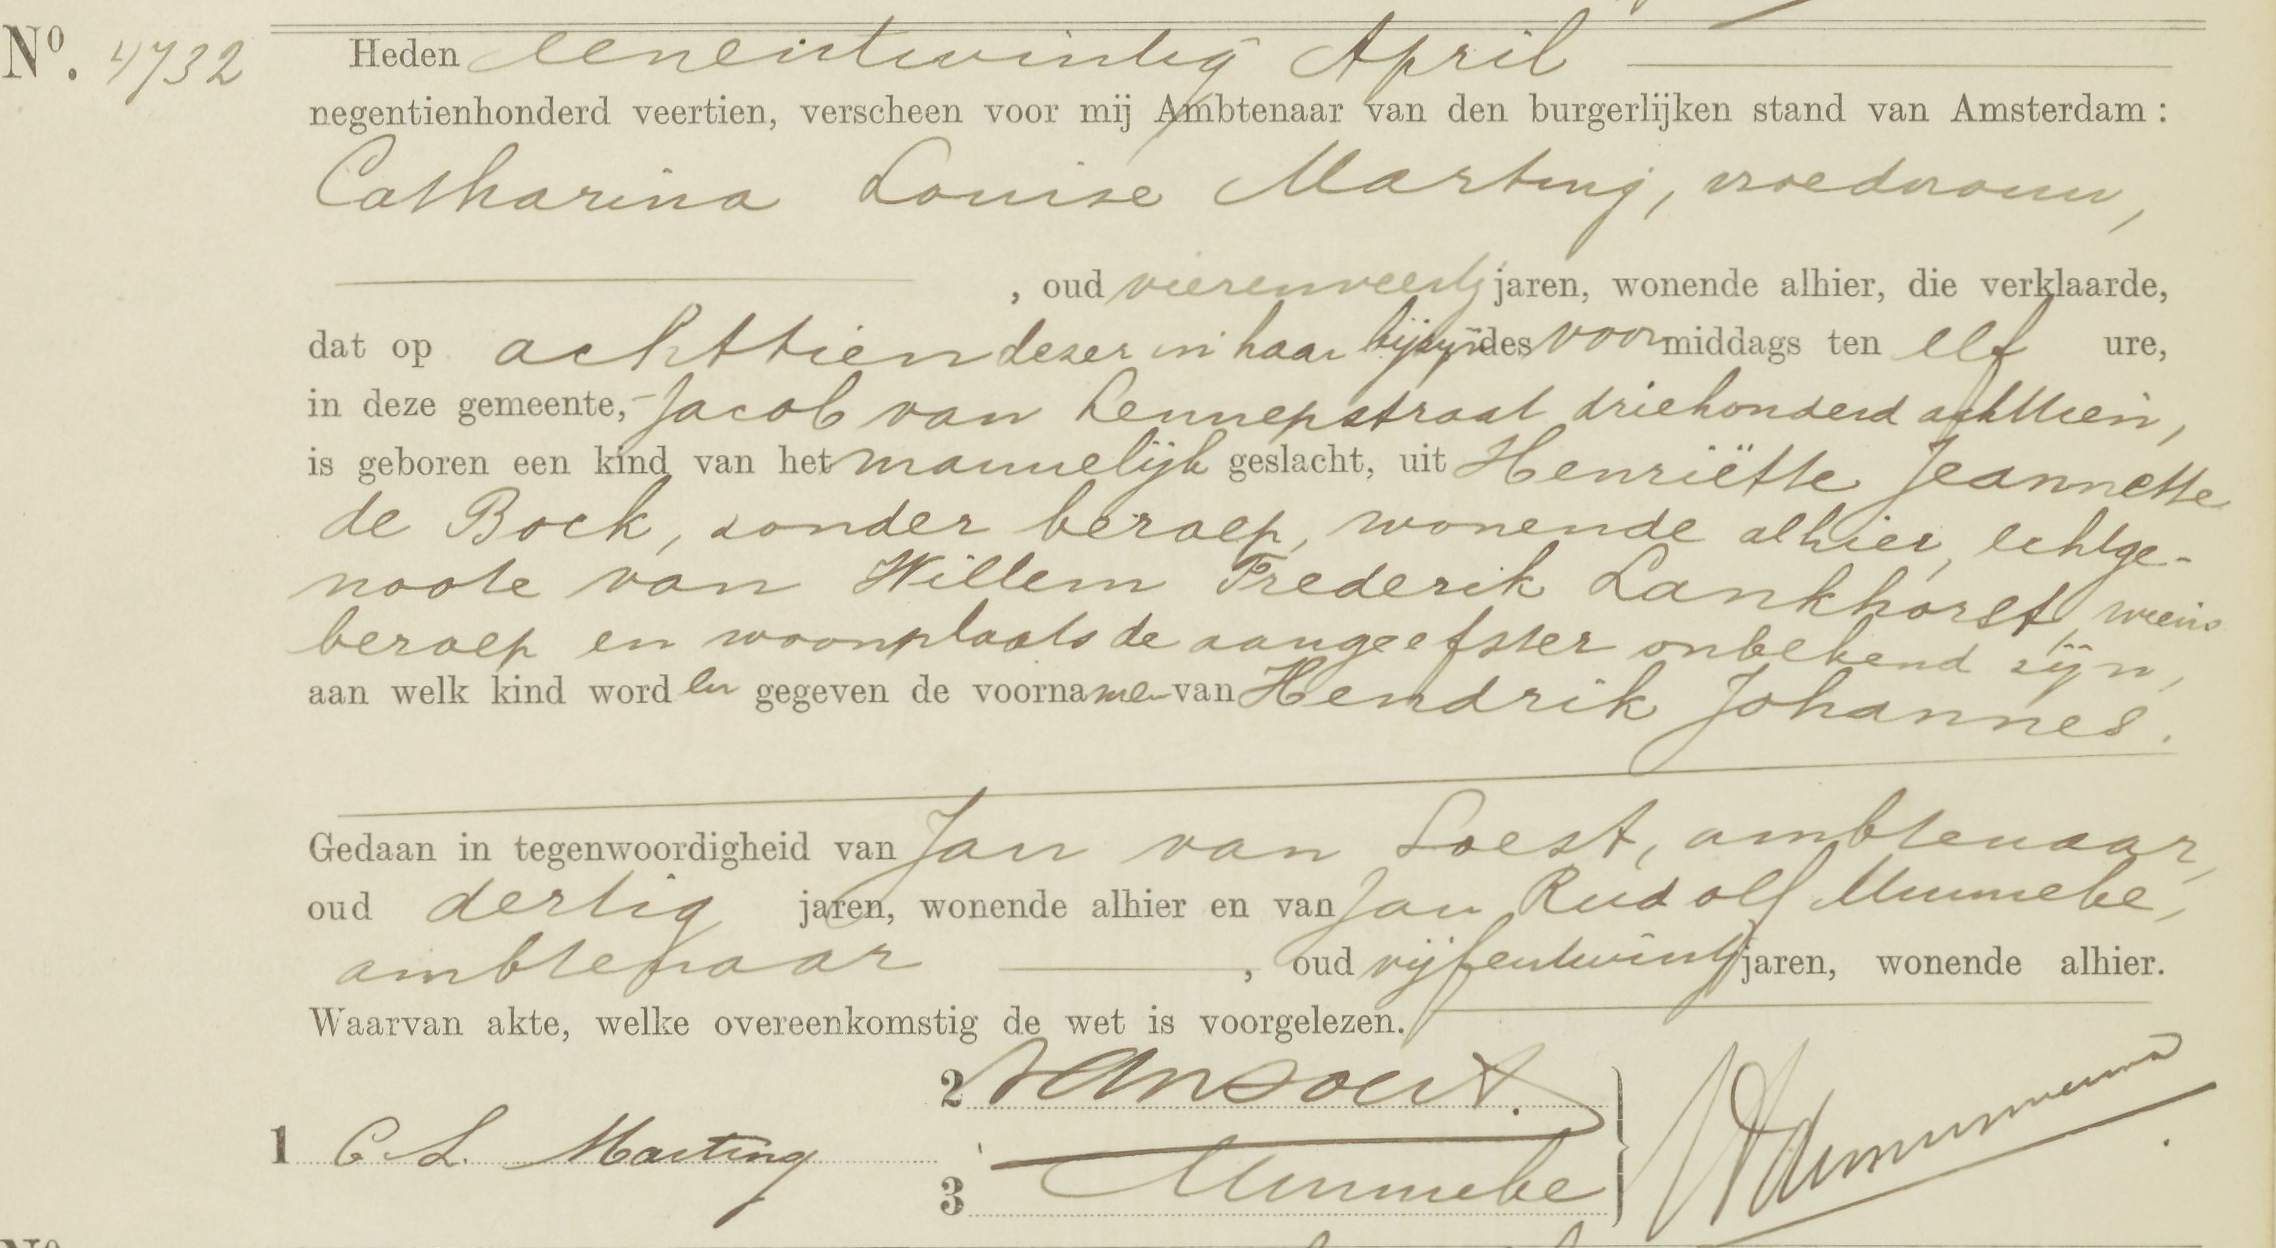 Nº. 4732 Heden eenentwintig April
negentienhonderd veertien, verscheen voor mij Ambtenaar van den burgerlijken stand van Amsterdam :
Catharina Louise Marting, vroedvrouw,
, oud vierenveertig jaren, wonende alhier, die verklaarde,
dat op achttien dezer in haar bijzijn des voormiddags ten elf ure,
in deze gemeente, Jacob van Lennepstraat driehonderd achttien,
is geboren een kind van het mannelijk geslacht, uit Henriëtte Jeannette
de Bock, zonder beroep, wonende alhier, echtge-
noote van Willem Frederik Lankhorst, wiens
beroep en woonplaats de aangeefster onbekend zijn,
aan welk kind worden gegeven de voornamen van Hendrik Johannes.
Gedaan in tegenwoordigheid van Jan van Soest, ambtenaar,
oud dertig jaren, wonende alhier en van Jan Rudolf Munnebe,
ambtenaar , oud vijfentwintig jaren, wonende alhier.
Waarvan akte, welke overeenkomstig de wet is voorgelezen.
2 van Soest.
1 C. L. Marting
3 Munnebe
Nº